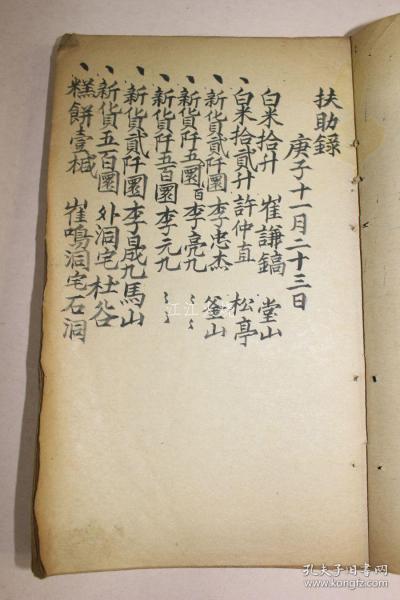 扶助錄
庚子十一月二十三日
白米拾升 崔謙鎬 堂山
、白米拾貳升 許仲直 松亭
、新貨貳仟圜 李忠杰 釜山
、新貨仟五百圜 李亮九 〻〻
、新貨仟五百圜 李元九 〻〻
、新貨貳仟圜 李晟九 馬山
、新貨五百圜 外洞宅 杜谷
、糕餠壹櫃 崔鳴洞宅 石洞
孔夫子旧书网
www.kongfz.com